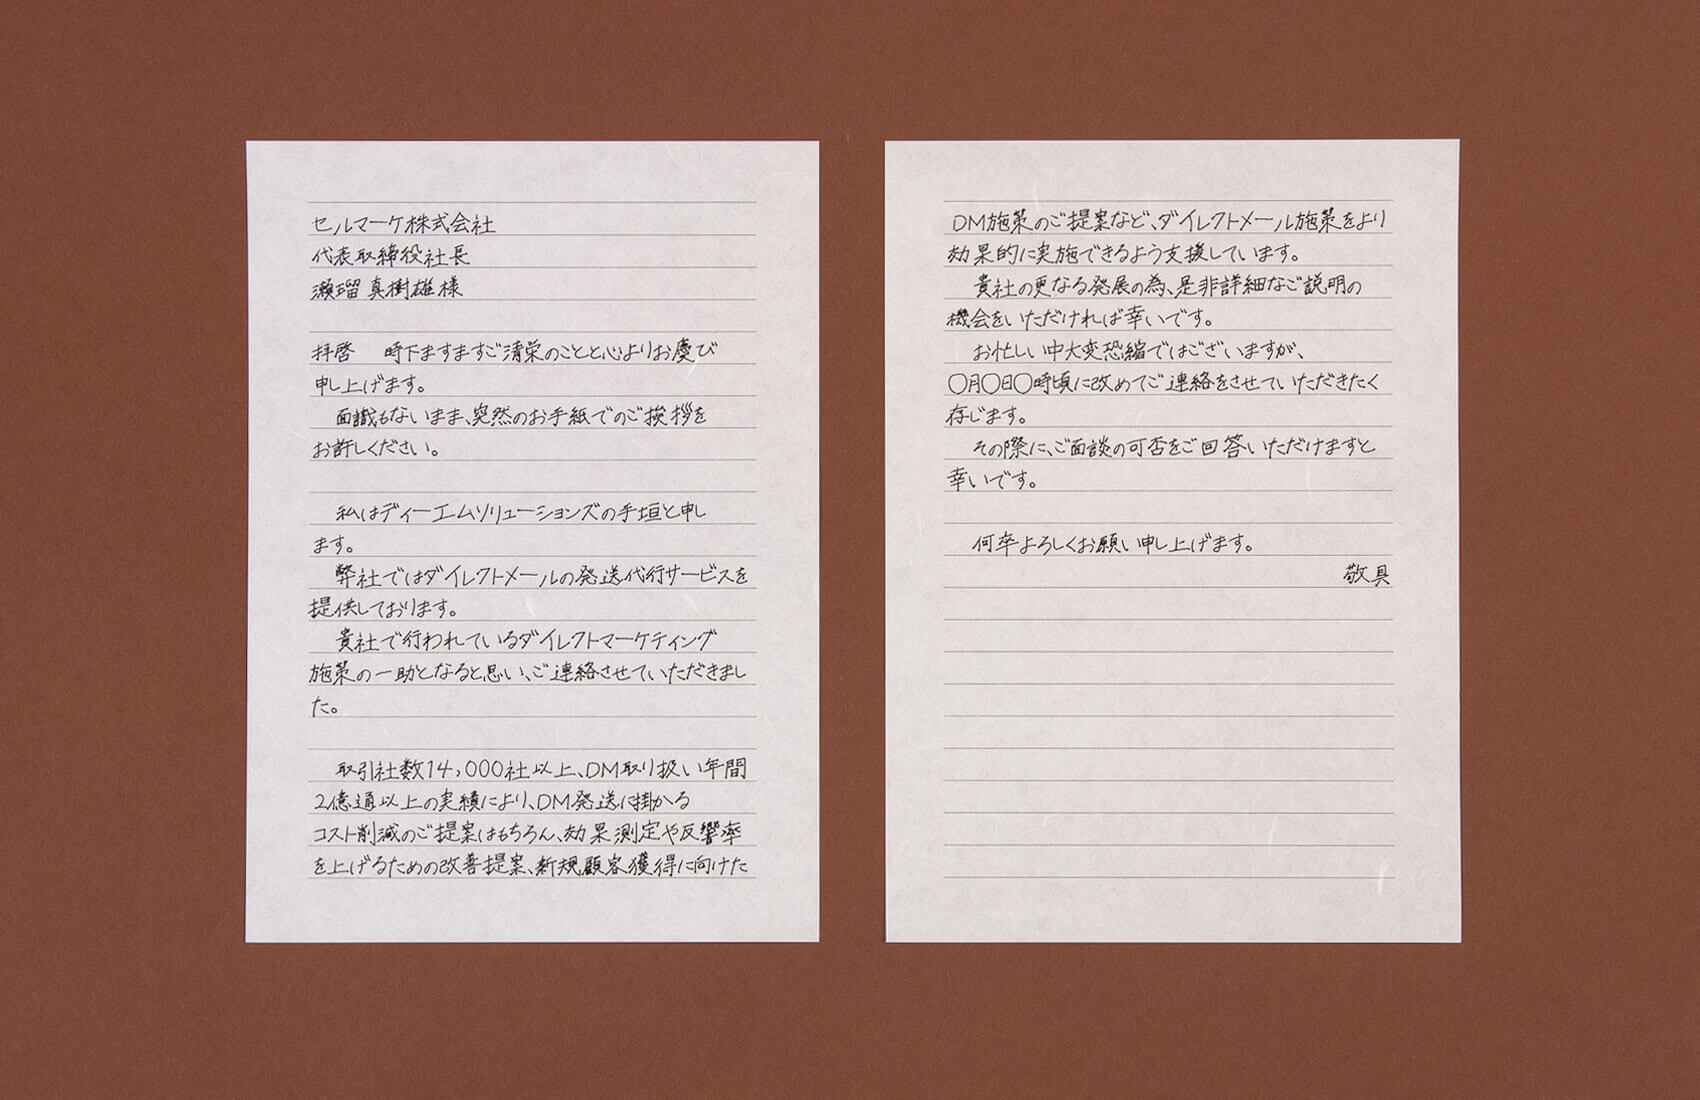 セルマーケ株式会社
代表取締役社長
瀬瑠 真樹雄様
拝啓　時下ますますご清栄のことと心よりお慶び
申し上げます。
面識もないまま、突然のお手紙でのご挨拶を
お許しください。
私はディーエムソリューションズの手垣と申し
ます。
弊社ではダイレクトメールの発送代行サービスを
提供しております。
貴社で行われているダイレクトマーケティング
施策の一助となると思い、ご連絡させていただきまし
た。
取引社数14,000社以上、DM取り扱い年間
2億通以上の実績により、DM発送に掛かる
コスト削減のご提案はもちろん、効果測定や反響率
を上げるための改善提案、新規顧客獲得に向けた
DM施策のご提案など、ダイレクトメール施策をより
効果的に実施できるよう支援しています。
貴社の更なる発展の為、是非詳細なご説明の
機会をいただければ幸いです。
お忙しい中大変恐縮ではございますが、
〇月〇日〇時頃に改めてご連絡をさせていただきたく
存じます。
その際に、ご面談の可否をご回答いただけますと
幸いです。
何卒よろしくお願い申し上げます。
敬具